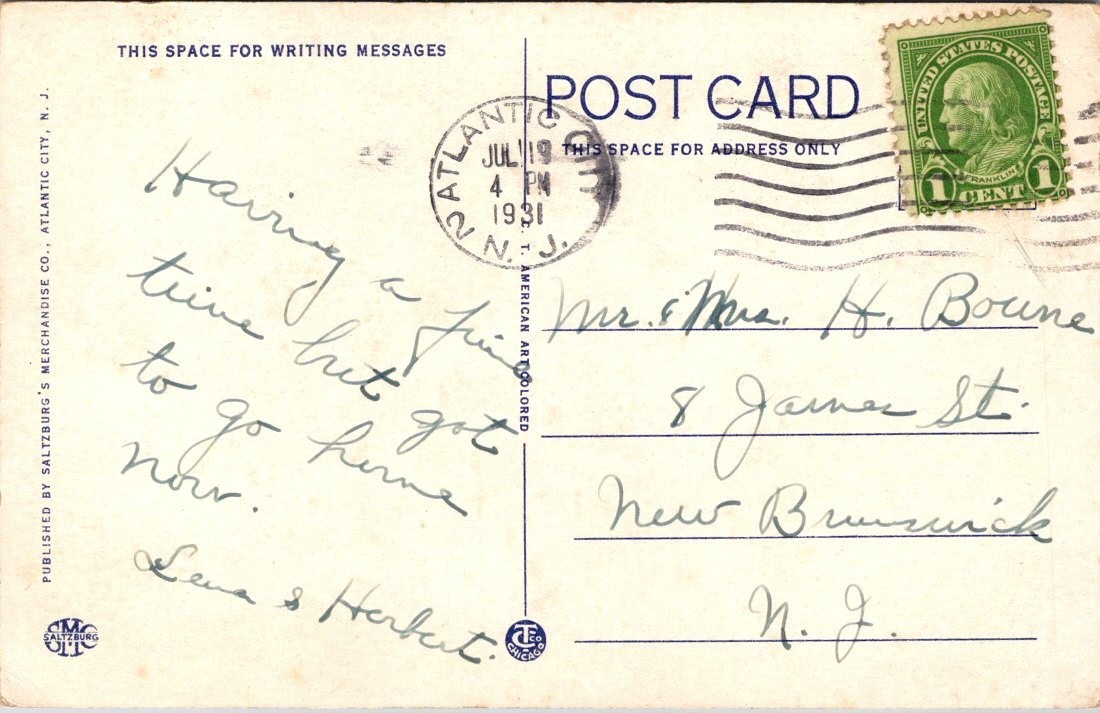 THIS SPACE FOR WRITING MESSAGES
POST CARD
THIS SPACE FOR ADDRESS ONLY
UNITED STATES POSTAGE
FRANKLIN
1 CENT 1
ATLANTIC CITY
JUL 19
4 PM
1931
2 N. J.
Having a fine
time but got
to go home
now.
Lena & Herbert.
Mr. & Mrs. H. Bowne
8 James St.
New Brunswick
N. J.
PUBLISHED BY SALTZBURG'S MERCHANDISE CO., ATLANTIC CITY, N. J.
C. T. AMERICAN ART COLORED
SMC
SALTZBURG
CT CO
CHICAGO